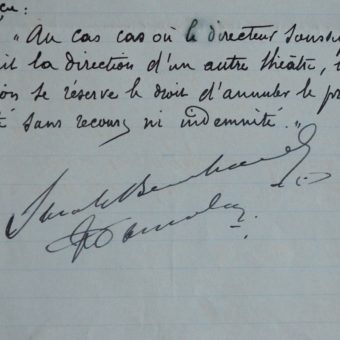 çu :
"Au cas cas où le directeur sousdi
it la direction d'un autre théâtre, l
on se réserve le droit d'annuler le pr
té sans recours ni indemnité."
Sarah Bernhardt